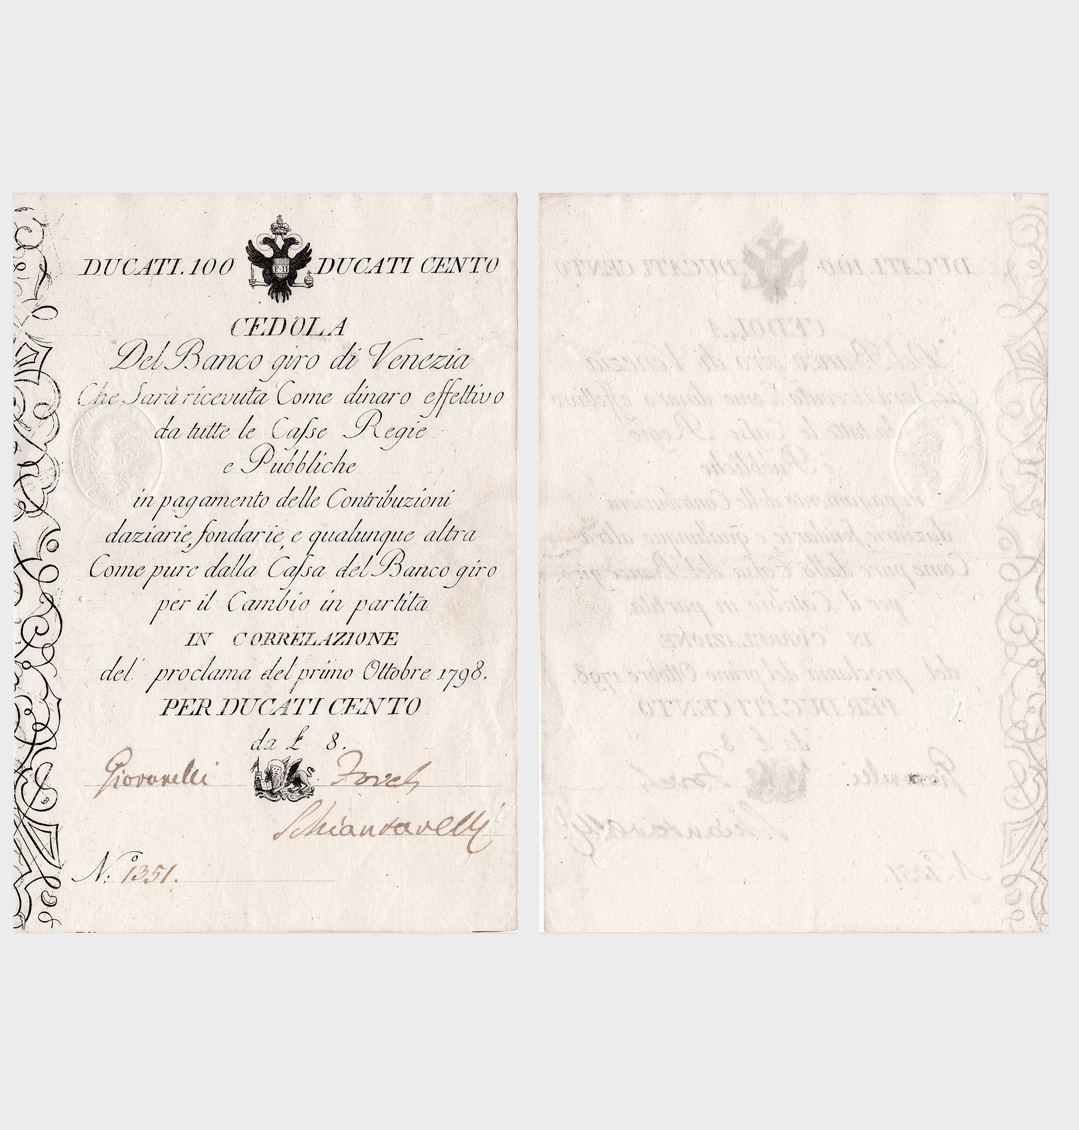 DUCATI. 100 DUCATI CENTO
CEDOLA
Del Banco giro di Venezia
Che Sarà ricevuta Come dinaro effettivo
da tutte le Casse Regie
e Pubbliche
in pagamento delle Contribuzioni
daziarie, fondarie, e qualunque altra
Come pure dalla Cassa del Banco giro
per il Cambio in partita
IN CORRELAZIONE
del proclama del primo Ottobre 1798.
PER DUCATI CENTO
da £ 8.
Giovanelli
N.º 1351.